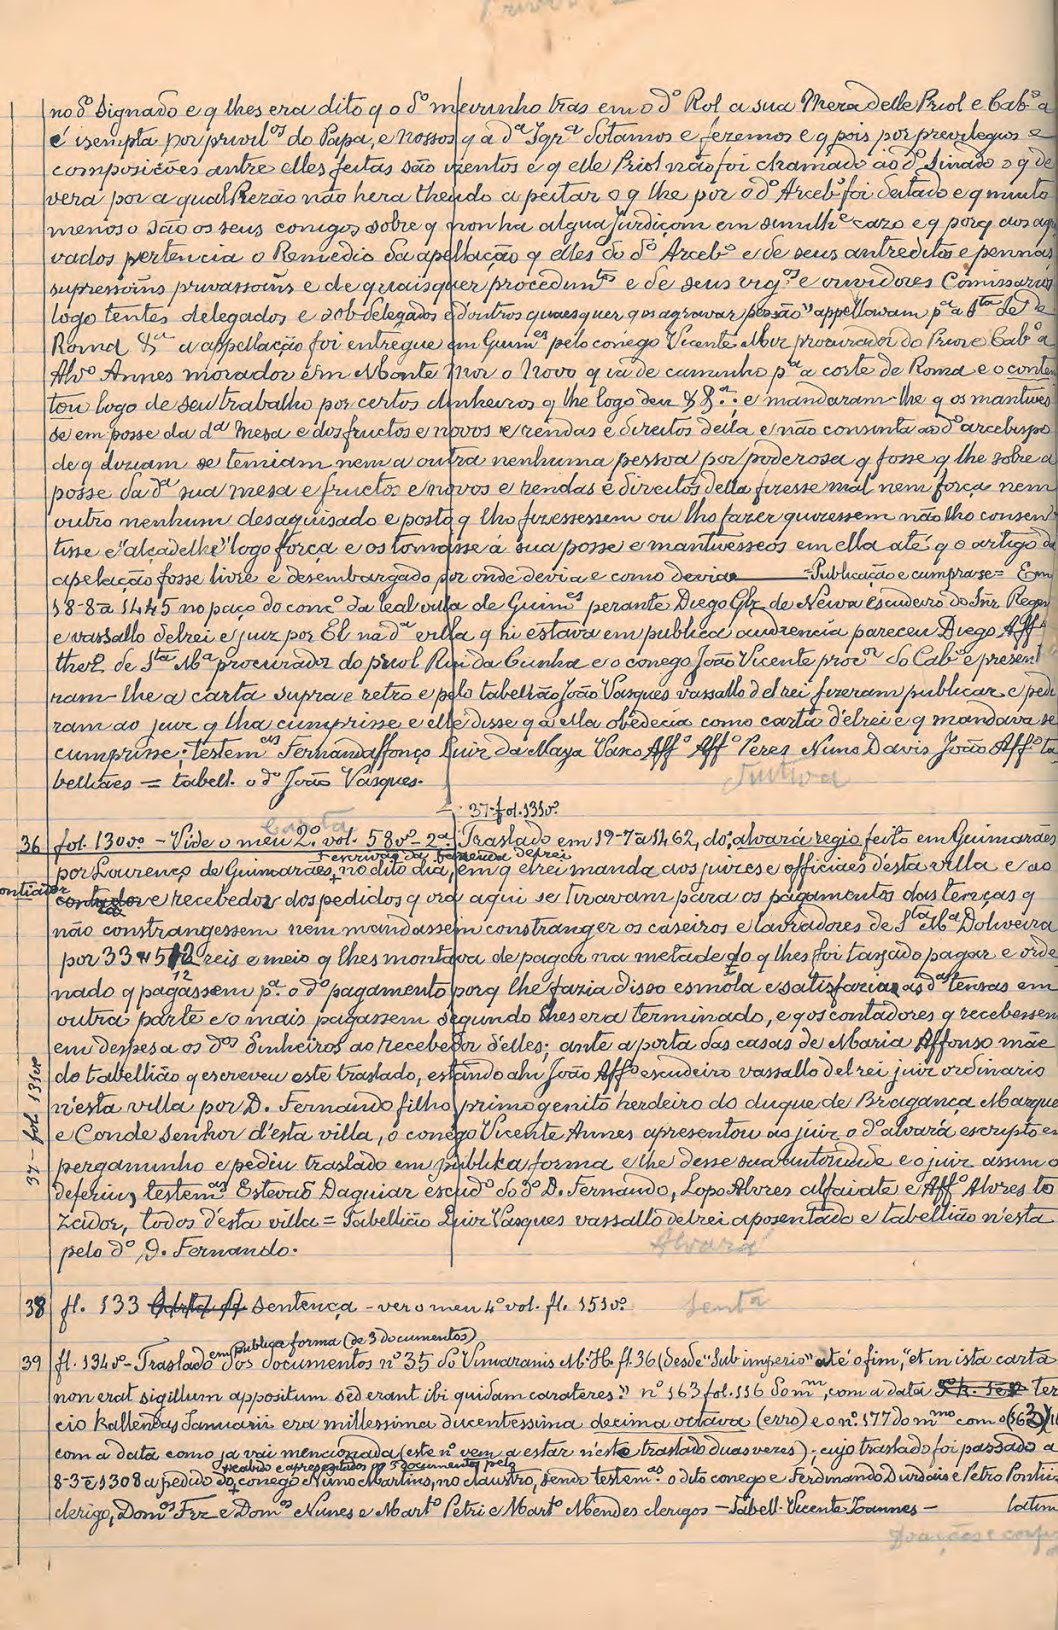 no dº signado e q lhes era dito q o dº meirinho tras em o dº Rol a sua Mera delle Priol e Cabº a
é isempta por privilºs do Papa, e nossos q a dª Igrª dotamos e fezemos e q pois por previlegios e
composisicões antre elles feitas são izentos e q elle Priol não foi chamado ao dº Sinado o q de
vera por a qual Rezão não hera theudo a peitar o q lhe por o dº Arcebº foi deitado e q muito
menos o são os seus conigos sobre q non ha algua jurdiçom em semilhe cazo e q porq aos agra
vados pertencia o Remedio da apellação q elles do dº Arcebº e de seus antreditos e pennas
supressoins privassoins e de quaisquer procedimtos e de seus vigºs e ouvidores Comissarios
logo tentes delegados e sob-delegados e doutros quaesquer q os agravar possão "appellavam pª a Sta Sé de
Roma &ª a appellação foi entregue em Guimes pelo conego Vicente Miz procurador do Prior e Cabº a
Alvº Annes morador em Monte Mor o Novo q ia de caminho pª a corte de Roma e o conten
tou logo de seu trabalho por certos dinheiros q lhe logo deu &ª; e mandaram-lhe q os mantives
se em posse da dª Mesa e dos fructos e novos e rendas e direitos della e não consinta ao dº arcebispo
de q diziam se temiam nem a outra nenhuma pessoa por poderosa q fosse q lhe sobre a
posse da dª sua mesa e fructos e novos e rendas e direitos della fizesse mal nem força nem
outro nenhum desaguisado e posto q lho fizessessem ou lho fazer quizessem não lho consen
tisse e "alçadelhe" logo força e os tornasse á sua posse e mantivesseos em ella até q o artigo da
apelação fosse livre e desembargado por onde devia e como devia — =Publicação e cumpra-se= Em
18-8-a 1445 no paço do concº da leal villa de Guimes perante Diego Glz de Neiva escudeiro do Snr Regen
e vassallo delrei e juiz por El na dª villa q hi estava em publica audiencia pareceu Diego Aff
the2 de Sta Mª procurador do priol Rui da Cunha e o conego João Vicente procor do Cabº e presen
nam-lhe a carta supra e retro e pelo tabellião João Vasques vassallo d'el rei fizeram publicar e pedi
ram ao juiz q lha cumprisse e elle disse q a ella obedecia como carta d'elrei e q mandava se
cumprisse; testemas Fernandaffonço Luiz da Maya Vasco Affº Affº Peres Nuno Davis João Affº ta
belliães = tabell. o dº João Vasques.
Tuitiva
37-fol. 131vº
Carta
36 fol. 130vº - Vide o meu 2º vol. 58vº - 2ª. Traslado em 19-7-a 1462, do; alvará regio feito em Guimarães
+ escrivão da fazenda delrei
por Lourenço de Guimarães + no dito dia, em q elrei manda aos juizes e officiaes d'esta villa e ao
contador e recebedor dos pedidos q ora aqui se tiravam para os pagamentos das tenças q
não constrangessem nem mandassem constranger os caseiros e lavradores de Sta Mª Dolíveira
por 33 512 reis e meio q lhes montava de pagar na metade do q lhes foi taxado pagar e orde
12
nado q pagassem pª o dº pagamento porq lhe fazia disso esmola e satisfazia as dªs tensas em
outra parte e o mais pagassem segundo lhes era terminado, e q os contadores q recebessem
em despesa os dºs dinheiros ao recebedor d'elles; ante a porta das casas de Maria Affonso mãe
do tabellião q escreveu este traslado, estando ahi João Affº escudeiro vassallo del rei juiz ordinario
37 - fol. 131vº
n'esta villa por D. Fernando filho primogenito herdeiro do duque de Bragança Marque
e Conde Senhor d'esta villa, o conego Vicente Annes apresentou ao juiz o dº alvará escripto em
pergaminho e pediu traslado em publika forma e lhe desse sua autoridade e o juiz assim o
deferiu, testemas Estevaõ Daguiar escudº do dº D. Fernando, Lopo Alvres alfaiate e Affº Alvres to
zador, todos d'esta villa = Tabellião Luiz Vasques vassallo delrei aposentado e tabellião n'esta
pelo dº D. Fernando.
Alvará
38 fl. 133 Sentença - ver o meu 4º vol. fl. 151vº
Sentª
em publica forma (de 3 documentos)
39 fl. 134vº - Traslado dos documentos nº 35 do Vimaranis M. H. fl. 36 (desde "Sub imperio" até o fim, "et in ista carta
non erat sigillum appositum sed erant ibi quidam carateres." nº 163 fol. 116 do mmo, com a data ter
cio kallendas Januarii era millessima ducentessima decima octava (erro) e o nº 177 do mmo com o (163)
com a data como ja vai mencionada (este nº vem a estar n'este traslado duas vezes); cujo traslado foi passado a
recebido e apresentados os 3 documentos pelo
8-3-e 1308 a pedido do conego Nuno Martins, no claustro, sendo testemas o dito conego e Ferdinando Durdais e Petro Pontii
clerigo, Domºs Frz e Domºs Nunes e Martº Petri e Martº Mendes clerigos - Tabell. Vicente Ioannes - latim
Doações e comp